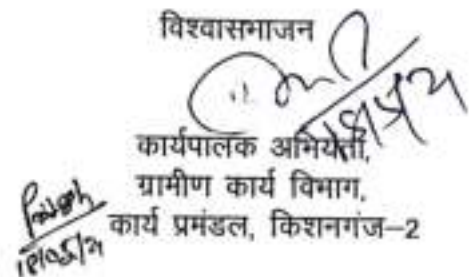 विश्वासभाजन
कार्यपालक अभियंता,
ग्रामीण कार्य विभाग,
कार्य प्रमंडल, किशनगंज–2